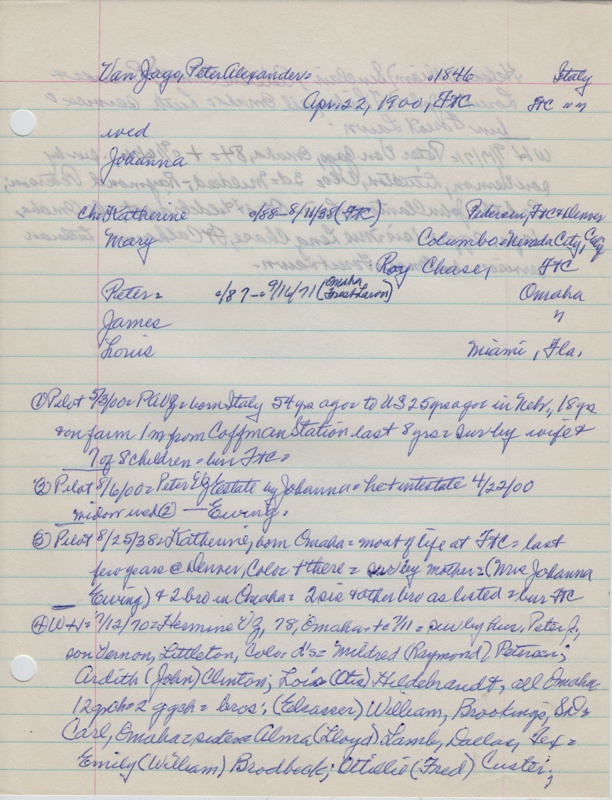 Van Jago, Peter Alexander= c1846 Italy
Apr. 22, 1900, FtC FtC " "
wed
Johanna
ch: Katherine c/88-8/11/38 (FtC) Pedersen, FtC & Denver
Mary Columbo= Nevada City,
Roy Chase, FtC
Peter= c/87-c9/16/71 (Omaha Forest Lawn) Omaha
James "
Louis Miami, Fla.
① Pilot 5/3/00= born Italy 54 yrs ago= to US 25 yrs ago= in Nebr, 18 yrs
& on farm 1m from Coffman Station last 8 yrs= surby wife &
7 of 8 children= bur FtC=
② Pilot 8/6/00= Peter estate by Johanna= he + intestate 4/22/00
widow wed ② — Ewing=
③ Pilot 8/25/38= Katherine, born Omaha= most of life at FtC= last
few years @ Denver, Color & there= surby mother= (Mrs Johanna
Ewing) & 2 bro in Omaha= 2 sis & other bro as listed= bur FtC
④ WH= 7/12/70= Hermine VZ, 78, Omaha= 7/11= surby hus, Peter J.,
son Vernon, Littleton, Color d's= Mildred (Raymond) Petersen;
Ardith (John) Clinton; Lois (Otis) Hildebrandt, all Omaha=
12 gch= 2 ggch= bros:, (Elsasser) William, Brookings, SD=
Carl, Omaha= sisters= Alma (Lloyd) Lamb, Dallas, Tex=
Emily (William) Brodbeck; Ottilie (Fred) Custer;